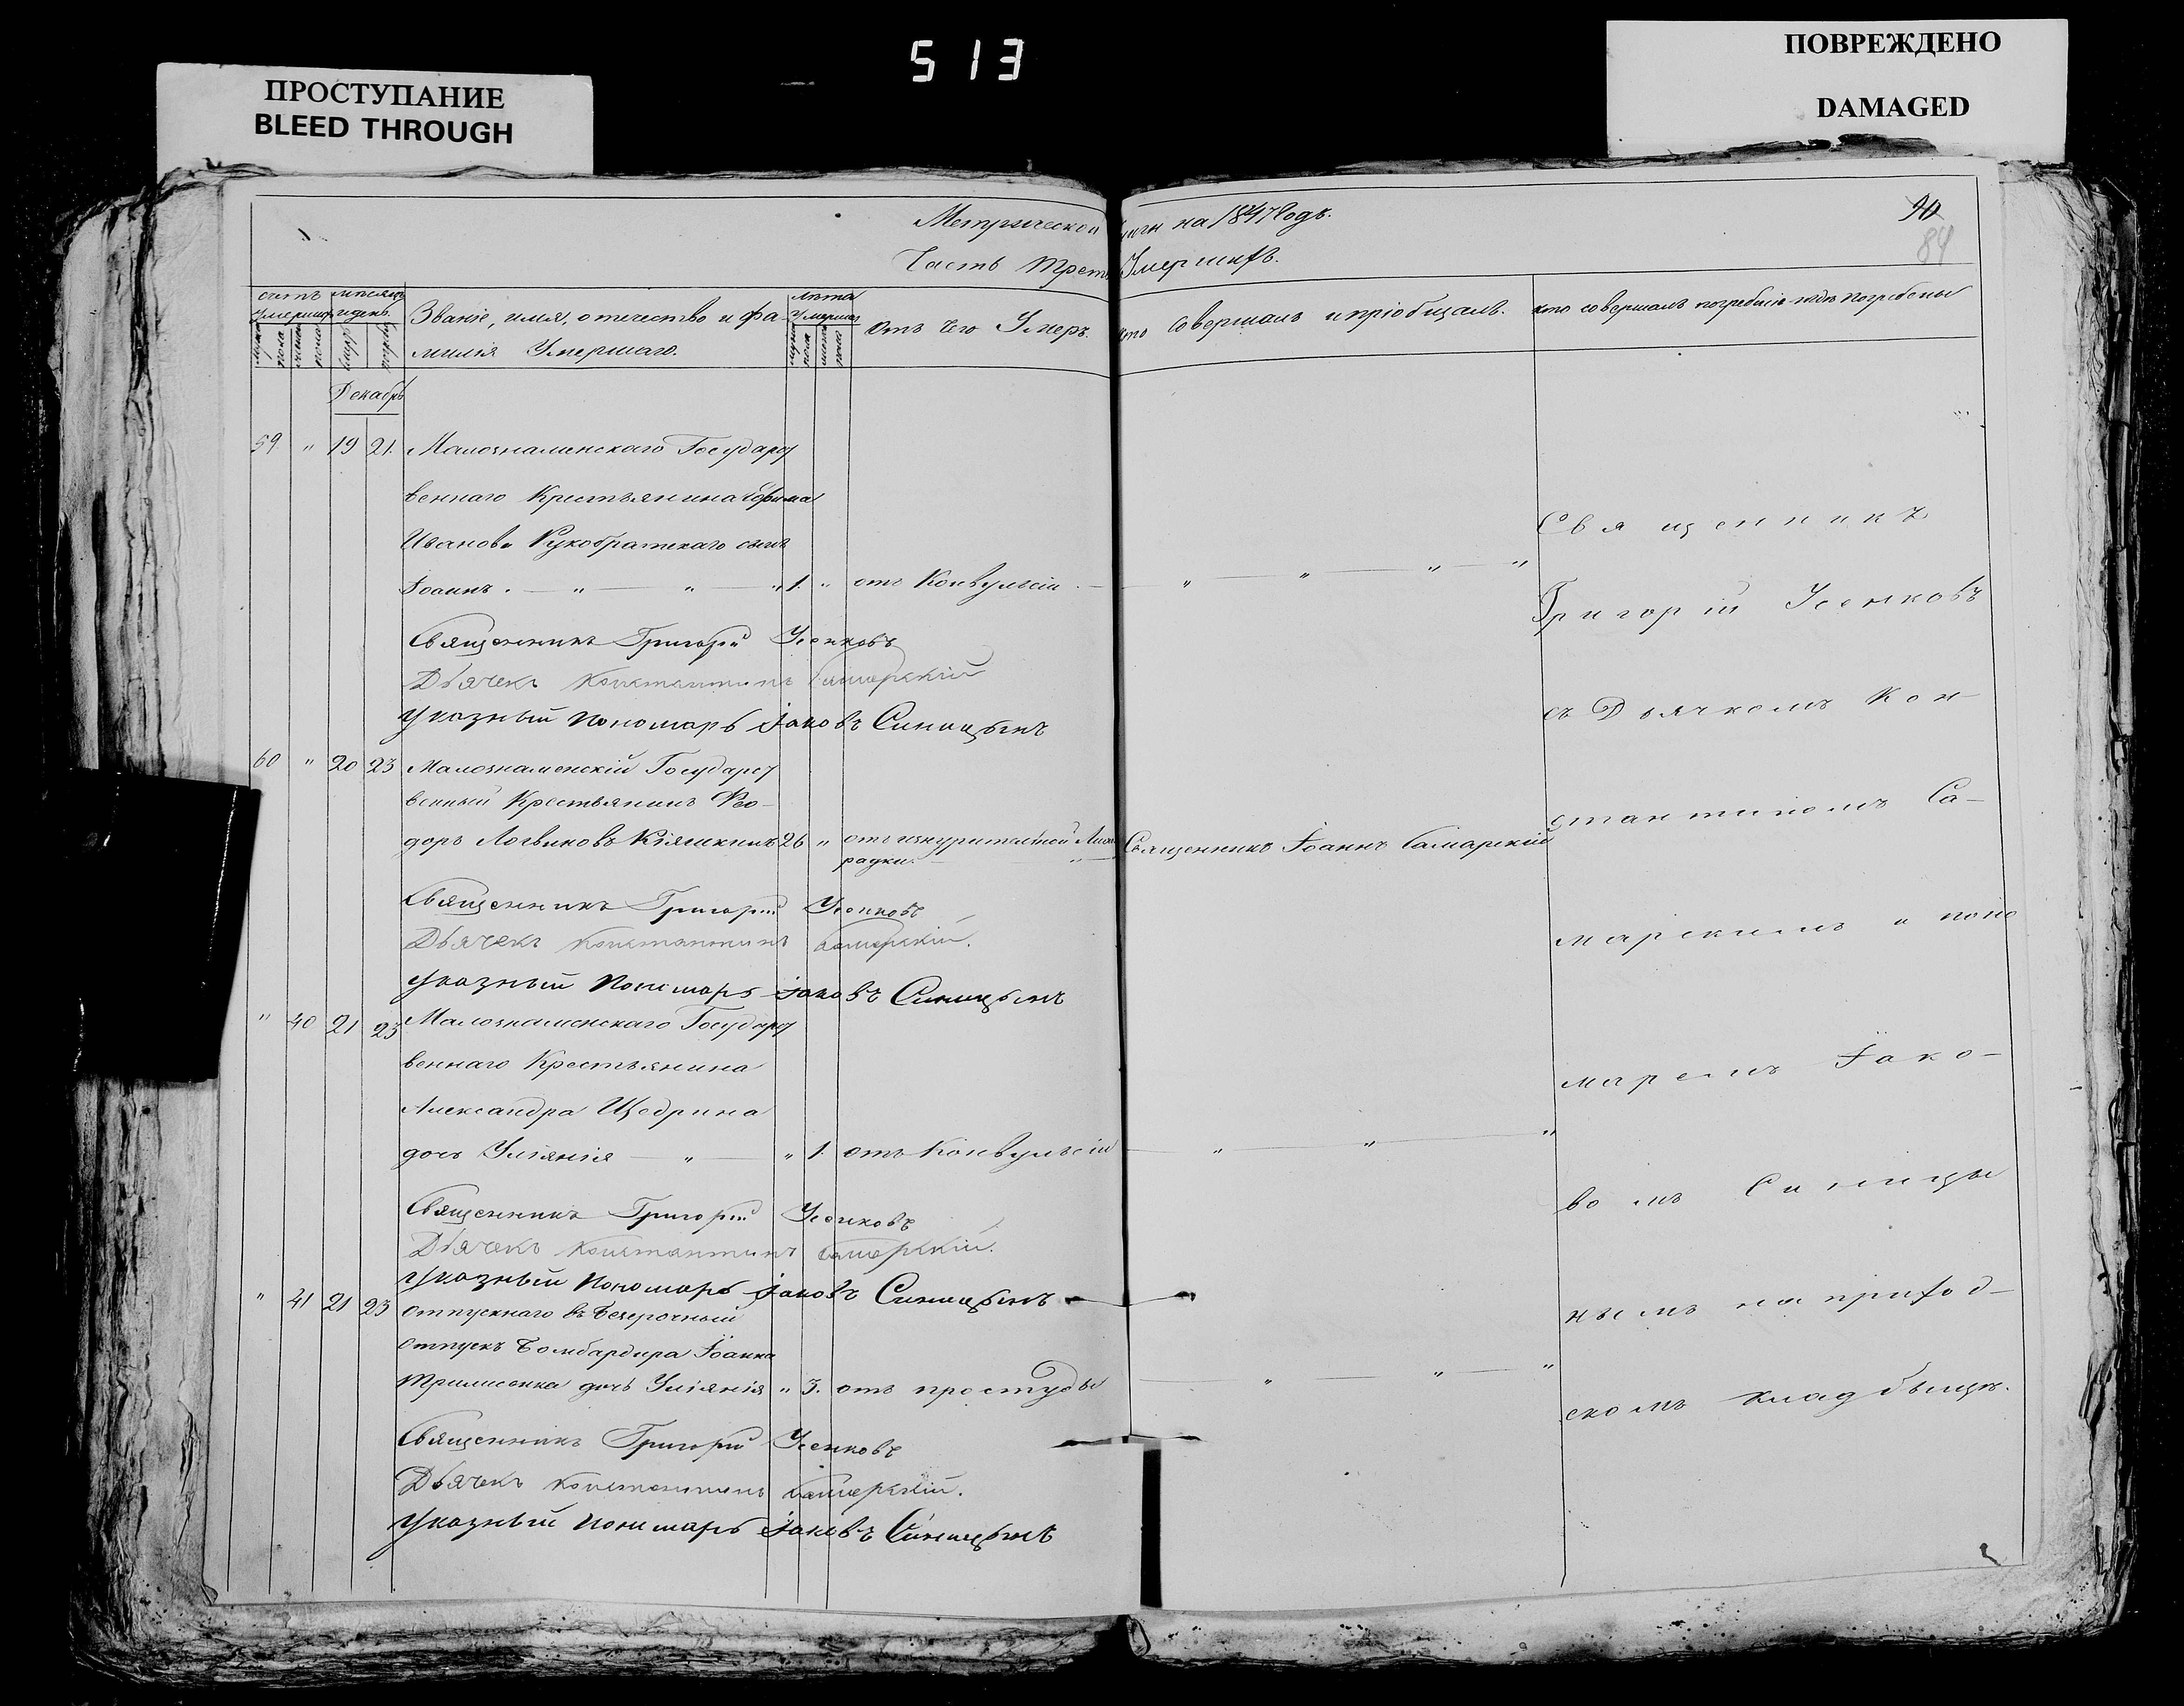 513
ПРОСТУПАНИЕ
BLEED THROUGH
ПОВРЕЖДЕНО
DAMAGED
90
84
Метрической книги на 1847 Годъ.
Часть трет Умершихъ.
счетъ умерших
мѣсяцъ и день.
Званіе, имя, отечество и фа-
милія Умершаго.
лѣта Умерша
Отъ чего Умеръ.
кто совершалъ и пріобщалъ.
кто совершалъ погребеніе и гдѣ погребены
Декабрь
59 " 19 21. Малознаменскаго Государст
веннаго Крестьянина Ефима
Иванова Кукобратскаго сынъ
Іоаннъ. — " — " — " 1. " отъ Конвульсіи — " — " — " — "
Священникъ Григорій Усенковъ
Дьячекъ Константинъ Самарскій
Указный Пономарь Іаковъ Синицынъ
60 " 20 23 Малознаменскій Государст
венный Крестьянинъ Ѳео-
доръ Логвиновъ Кіяшкинъ 26 " отъ изнурительной Лихо
радки. — " — Священникъ Іоаннъ Самарскій
Священникъ Григорій Усенковъ
Дьячекъ Константинъ Самарскій.
Указный Пономарь Іаковъ Синицынъ
" 40 21 23 Малознаменскаго Государст
веннаго Крестьянина
Александра Щедрина
дочь Уліянія — " — " 1. отъ Конвульсіи — " — " — "
Священникъ Григорій Усенковъ
Дьячекъ Константинъ Самарскій.
Указный Пономарь Іаковъ Синицынъ
" 41 21 23 отпускнаго въ безсрочный
отпускъ Бомбардира Іоанна
дочь Уліянія " 3. отъ простуды — " — " — "
Священникъ Григорій Усенковъ
Дьячекъ Константинъ Самарскій.
Указный Пономарь Іаковъ Синицынъ
Священникъ
Григорій Усенковъ
съ Дьячкомъ Кон-
стантиномъ Са-
марскимъ и поно
маремъ Іако-
вомъ Синицы
нымъ на приход-
скомъ кладбыщѣ.